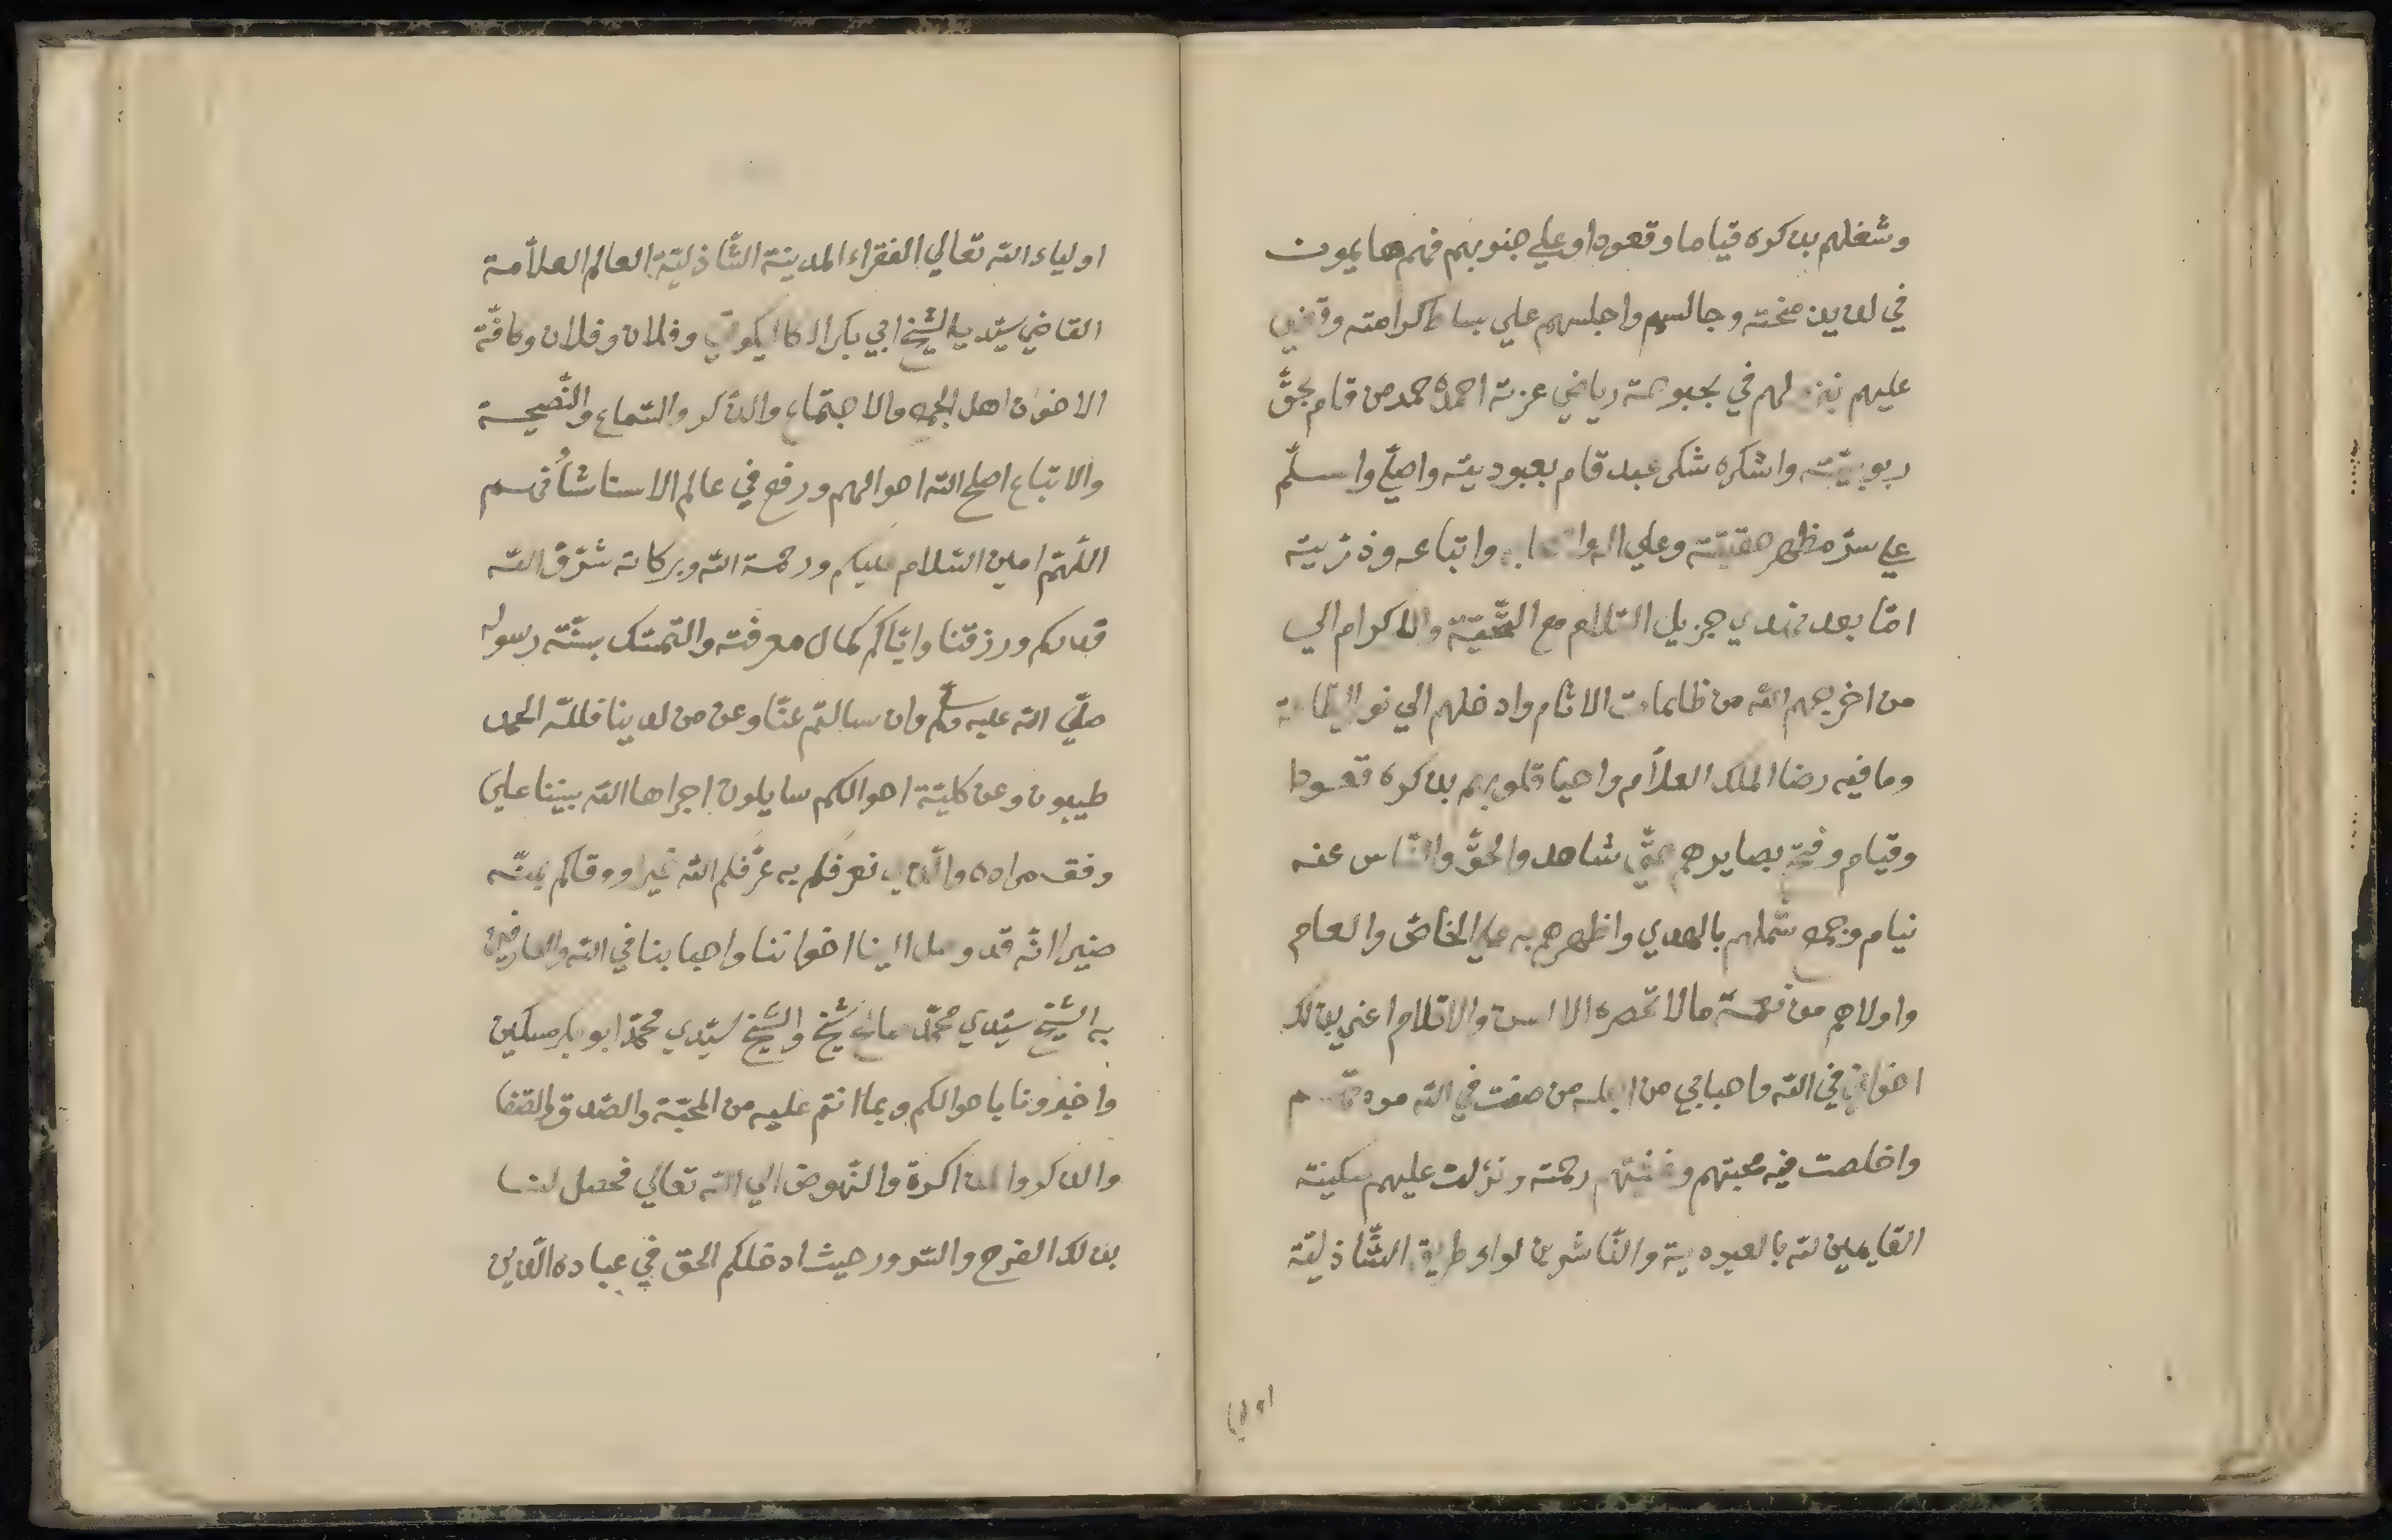 وشغلهم بذكره قياما وقعودا وعلي جنوبهم فهم هايمون
في لذيذ منحته وجالسهم واجلسهم علي بساط كرامته وقضي
عليهم لهم في بحبوحة رياض عزته احمده حمد من قام بحقّ
ربوبيّته واشكره شكر عبد قام بعبوديته واصلّي واسلّم
علي سرّ مظهر حقيقته وعلي اله واتباعه وذرّيته
امّا بعد فنهدي جزيل السّلام مع التّحيّة والاكرام الي
من اخرجهم الله من ظلمات الاثام وادخلهم الي نور
وما فيه رضا الملك العلاّم واحيا قلوبهم بذكره قعودا
وقيام وفتح بصايرهم حتّي شاهدوا الحقّ والنّاس عنه
نيام وجمع شملهم بالهدي واظهرهم به علي الخاصّ والعام
واولاهم من نعمة ما لا تحصره الالسن والاقلام اعني بذلك
اخواني في الله واحبابي من اجله من صفت في الله مودّتهم
واخلصت فيه محبتهم وغشيتهم رحمته ونزلت عليهم سكينته
القايمين لله بالعبودية والنّاشرين لواء طريق الشّاذليّة
اوليا
اولياء الله تعالي الفقراء المدينة الشّاذليّة العالم العلاّمة
القاضي سيّدي الشّيخ ابي بكر الكاليكوتي وفلان وفلان وكافّة
الاخوان اهل الجمع والاجتماع والذّكر والسّماع والنّصيحة
والاتباع اصلح الله احوالهم ورفع في عالم الاسنا شأنهم
اللّهمّ امين السّلام عليكم ورحمة الله وبركاته شرّف الله
قدركم ورزقنا وايّاكم كمال معرفته والتّمسّك بسنّة رسوله
صلّي الله عليه وسلّم وان سالتم عنّا وعن من لدينا فلله الحمد
طيبون وعن كليّة احوالكم سايلون اجراها الله بيننا علي
وفق مراده والّذي نعرفكم به عرّفكم الله خيرا ووقاكم بمنّه
ضيرا انّه قد وصل الينا اخواننا واحبابنا في الله والعارفين
به الشّيخ سيّدي محمّد شيخ والشّيخ سيّدي محمّد ابو بكر مسكين
واخبرونا باحوالكم وبما انتم عليه من المحبّة والصّدق والصّفا
والذكر والمذاكرة والنّهوض الي الله تعالي فحصل لنا
بذلك الفرح والسّرور حيث ادخلكم الحق في عباده الّذين